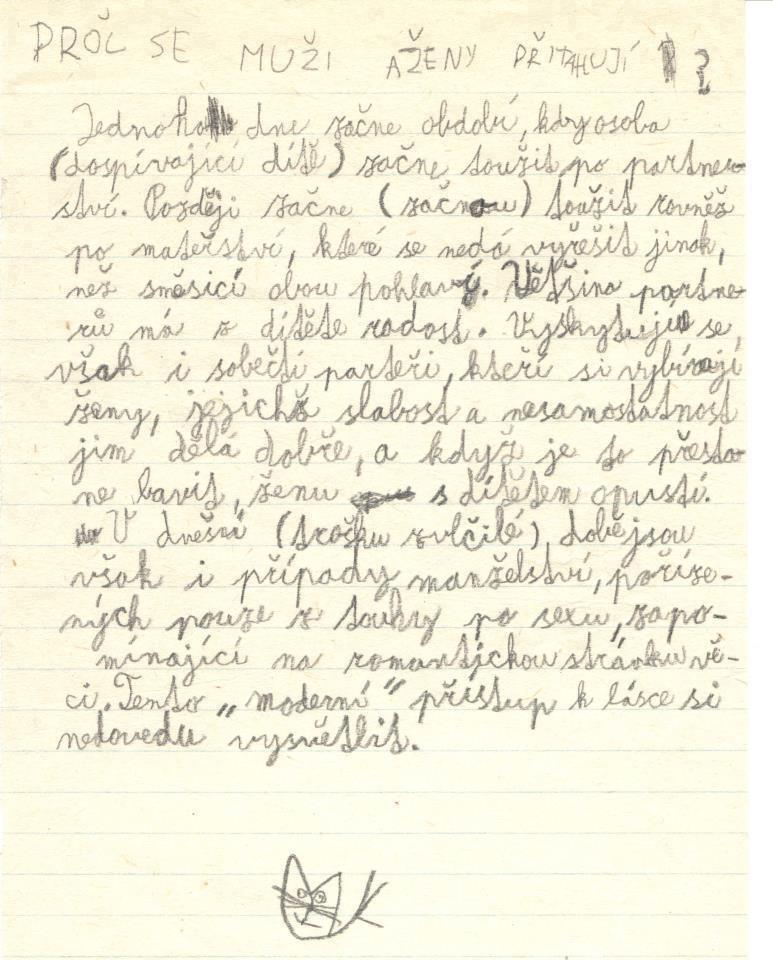 PROČ SE MUŽI A ŽENY PŘITAHUJÍ ?
Jednoho dne začne období, kdy osoba
(dospívající dítě) začne toužit po partner-
ství. Později začne (začnou) toužit rovněž
po mateřství, které se nedá vyřešit jinak,
než směsicí obou pohlaví. Většina partne-
rů má z dítěte radost. Vyskytuju se
však i sobečtí parteři, kteří si vybírají
ženy, jejichž slabost a nesamostatnost
jim dělá dobře, a když je to přesta-
ne bavit, ženu s dítětem opustí.
V dnešní (trošku zvlčilé) době jsou
však i případy manželství, poříze-
ných pouze z touhy po sexu, zapo-
mínající na romantickou stránku vě-
ci. Tento „moderní" přístup k lásce si
nedovedu vysvětlit.